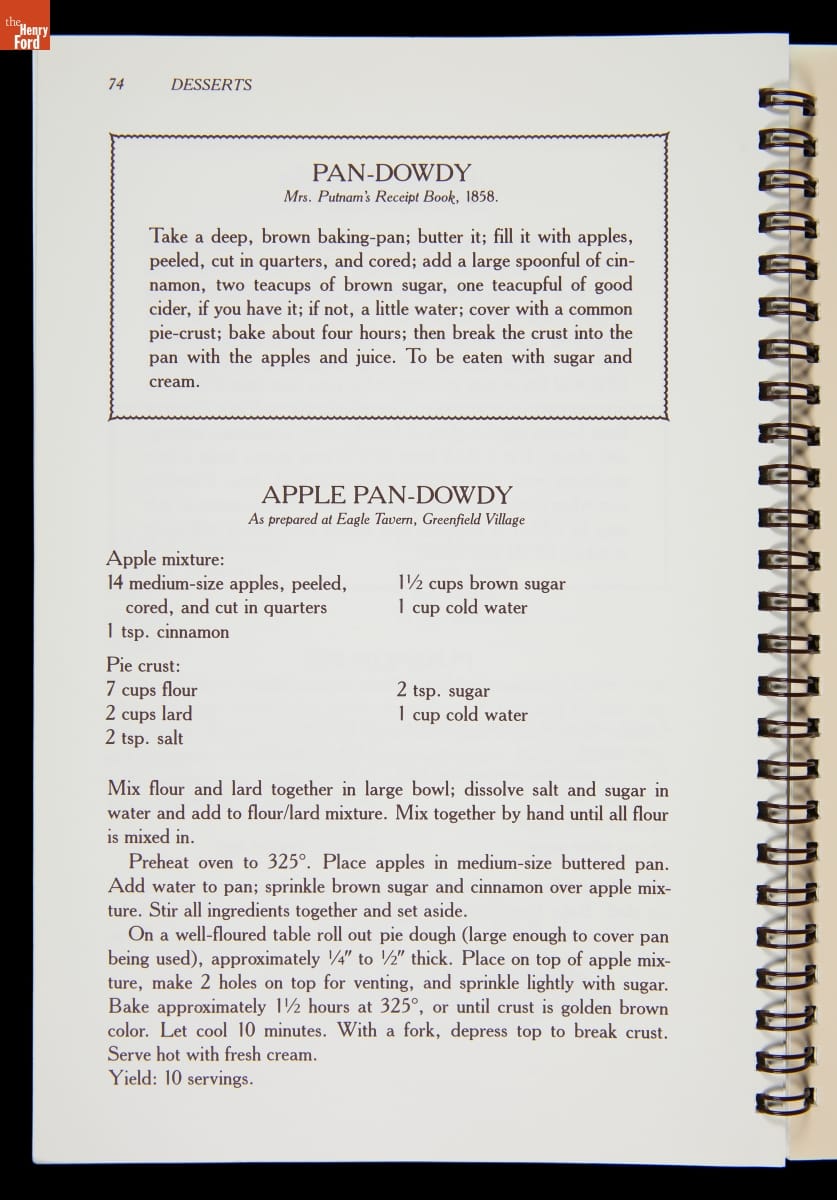 the
Henry
Ford
74 DESSERTS
PAN-DOWDY
Mrs. Putnam's Receipt Book, 1858.
Take a deep, brown baking-pan; butter it; fill it with apples,
peeled, cut in quarters, and cored; add a large spoonful of cin-
namon, two teacups of brown sugar, one teacupful of good
cider, if you have it; if not, a little water; cover with a common
pie-crust; bake about four hours; then break the crust into the
pan with the apples and juice. To be eaten with sugar and
cream.
APPLE PAN-DOWDY
As prepared at Eagle Tavern, Greenfield Village
Apple mixture:
14 medium-size apples, peeled,
cored, and cut in quarters
1 tsp. cinnamon
1½ cups brown sugar
1 cup cold water
Pie crust:
7 cups flour
2 cups lard
2 tsp. salt
2 tsp. sugar
1 cup cold water
Mix flour and lard together in large bowl; dissolve salt and sugar in
water and add to flour/lard mixture. Mix together by hand until all flour
is mixed in.
Preheat oven to 325°. Place apples in medium-size buttered pan.
Add water to pan; sprinkle brown sugar and cinnamon over apple mix-
ture. Stir all ingredients together and set aside.
On a well-floured table roll out pie dough (large enough to cover pan
being used), approximately ¼″ to ½″ thick. Place on top of apple mix-
ture, make 2 holes on top for venting, and sprinkle lightly with sugar.
Bake approximately 1½ hours at 325°, or until crust is golden brown
color. Let cool 10 minutes. With a fork, depress top to break crust.
Serve hot with fresh cream.
Yield: 10 servings.